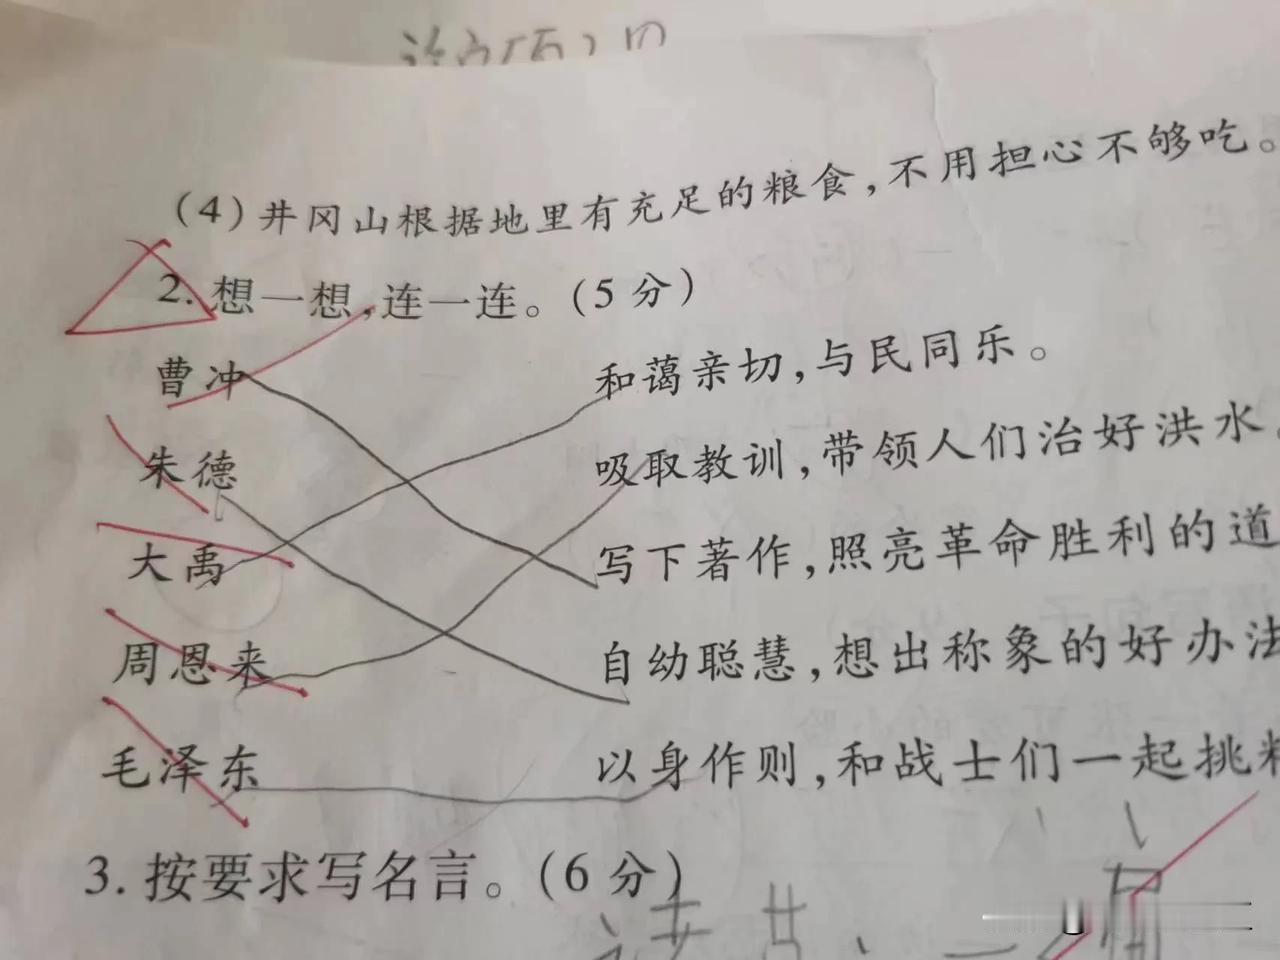 (4)井冈山根据地里有充足的粮食,不用担心不够吃。
2.想一想,连一连。(5分)
曹冲 和蔼亲切,与民同乐。
朱德 吸取教训,带领人们治好洪水。
大禹 写下著作,照亮革命胜利的道
周恩来 自幼聪慧,想出称象的好办法
毛泽东 以身作则,和战士们一起挑粮
3.按要求写名言。(6分)